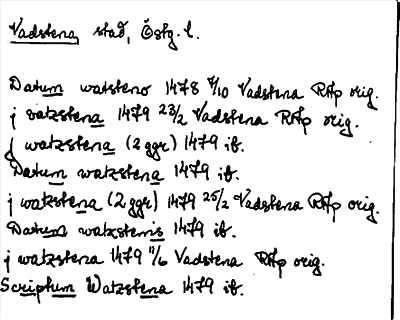 Vadstena, stad, Östg. l.
Datum watsteno 1478 7/10 Vadstena RAp orig.
j vatzstena 1479 23/2 Vadstena RAp orig.
j watzstena (2 ggr) 1479 ib.
Datum watzstena 1479 ib.
j watzstena (2 ggr) 1479 25/2 Vadstena RAp orig.
Datum watzstenis 1479 ib.
j watzstena 1479 11/6 Vadstena RAp orig.
Scriptum Watzstena 1479 ib.